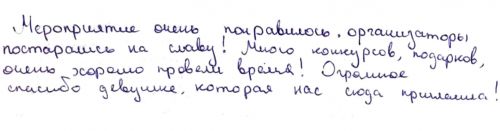 Мероприятие очень понравилось, организаторы
постарались на славу! Много конкурсов, подарков,
очень хорошо провели время! Огромное
спасибо девушке, которая нас сюда пригласила!